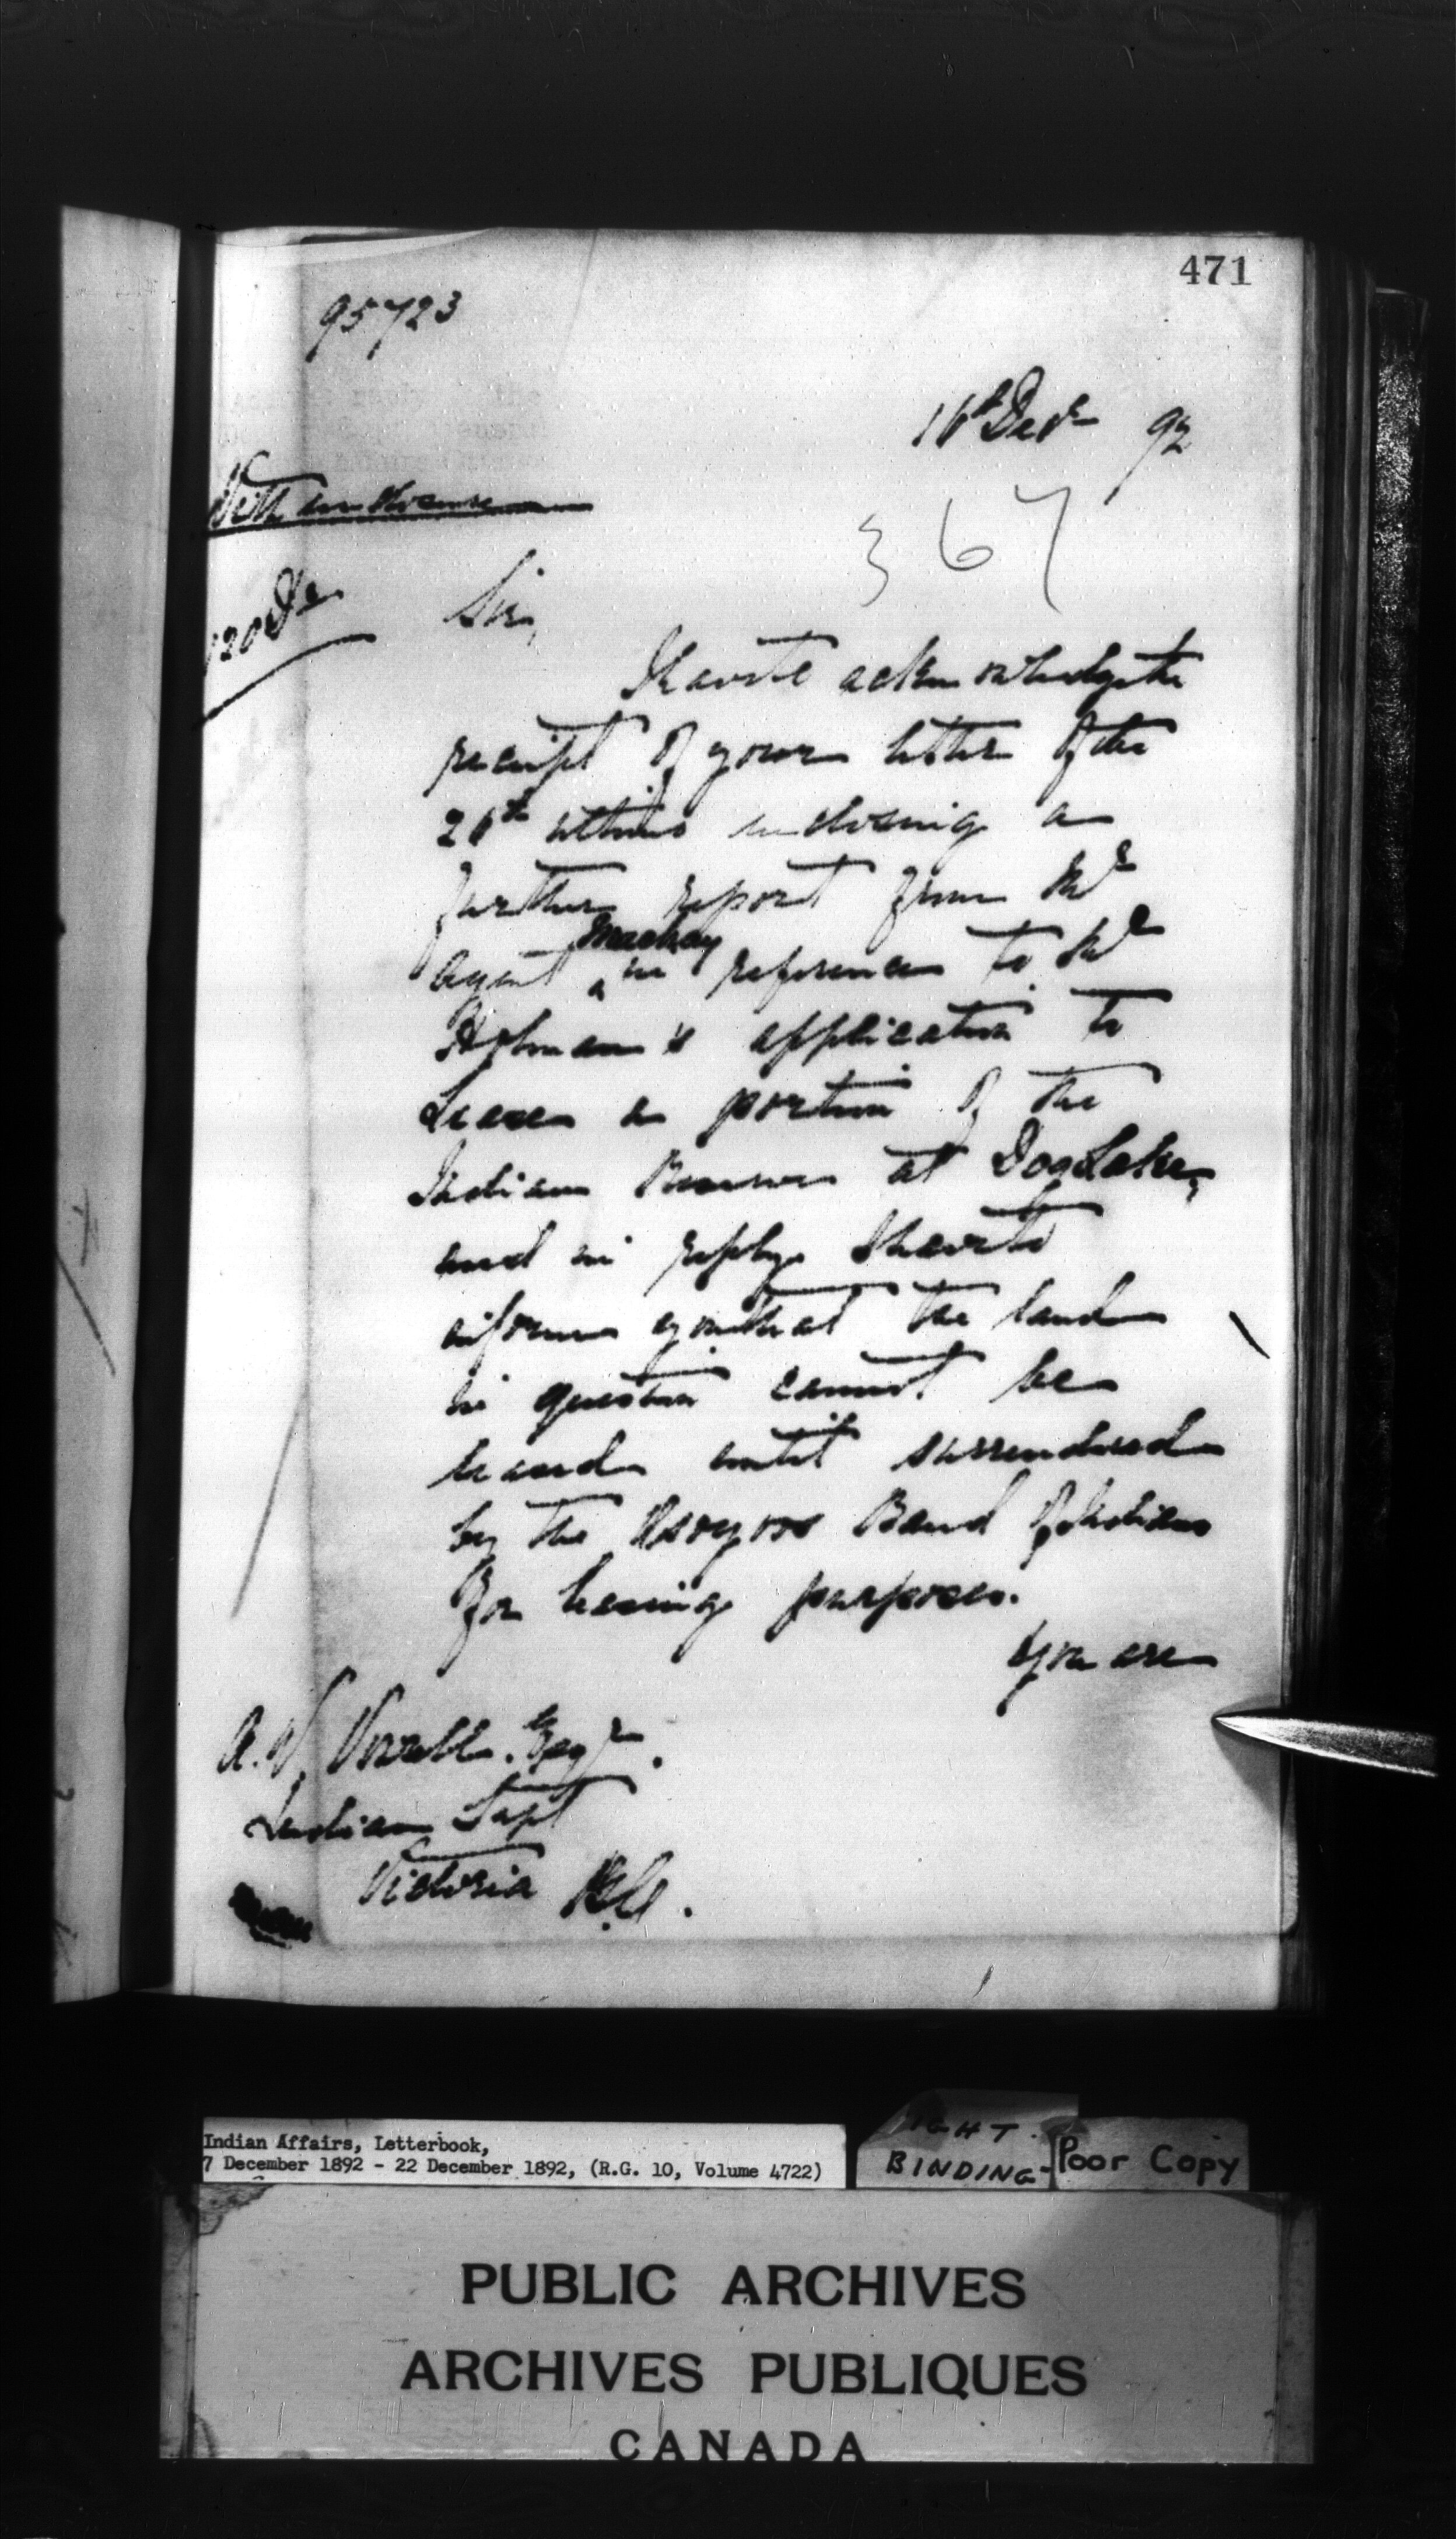 471
95723
16th Decr 92
With enclosure
367
Sir,
I have to acknowledge the
receipt of your letter of the
26th ultimo enclosing a
further report from Mr
Agent Mackay in reference to Mr
Holman's application to
Lease a portion of the
Indian Reserve at Dog Lake,
and in reply I have to
inform you that the land
in question cannot be
leased until surrendered
by the Osoyoos Band of Indians
for leasing purposes.
You are
A. W. Vowell. Esqr.
Indian Supt
Victoria B.C.
Indian Affairs, Letterbook,
7 December 1892 - 22 December 1892, (R.G. 10, Volume 4722)
BINDING
Poor Copy
PUBLIC ARCHIVES
ARCHIVES PUBLIQUES
CANADA